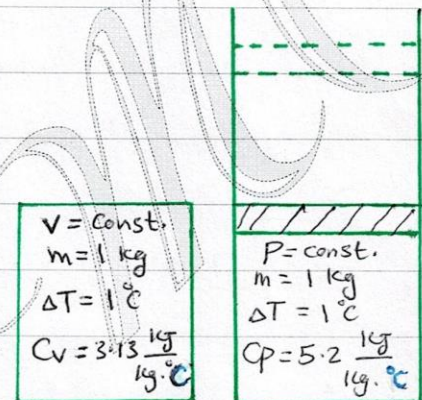 V = Const.
m = 1 kg
ΔT = 1 °C
Cv = 3.13 kJ/kg.°C
P = const.
m = 1 kg
ΔT = 1 °C
Cp = 5.2 kJ/kg.°C